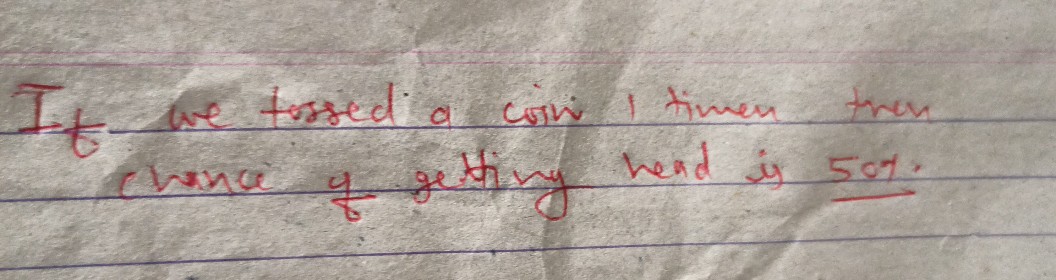 If we tossed a coin 1 times then
chance of getting head is 50%.